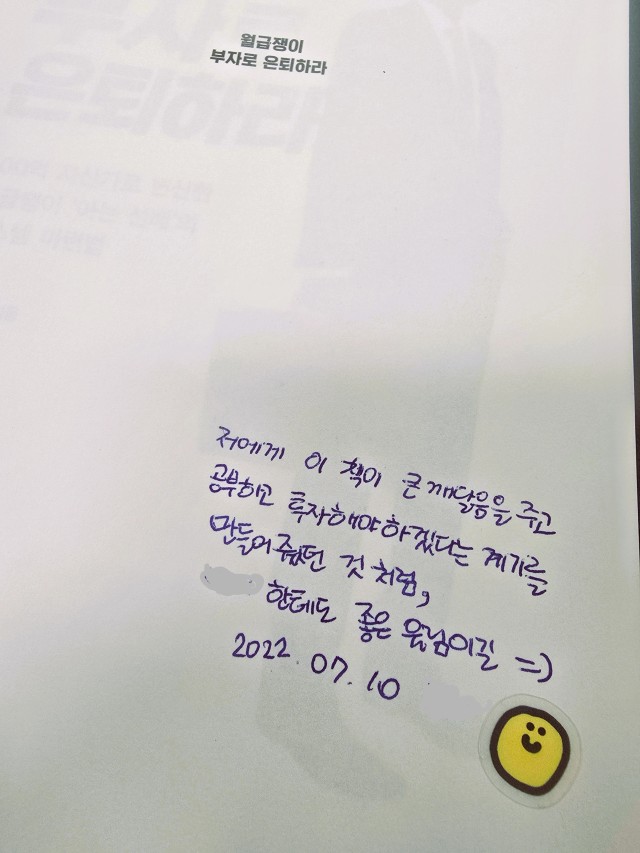 부자로
은퇴하라
월급쟁이
부자로 은퇴하라
저에게 이 책이 큰 깨달음을 주고
공부하고 투자해야하겠다는 계기를
만들어줬던 것 처럼,
한테도 좋은 울림이길 =)
2022. 07. 10